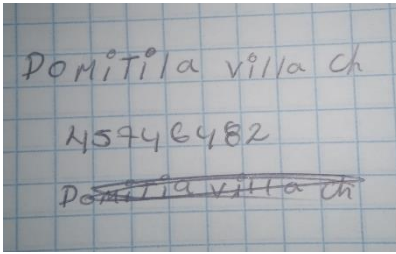 DOMITILA villa Ch
45746482
Domitia villa ch